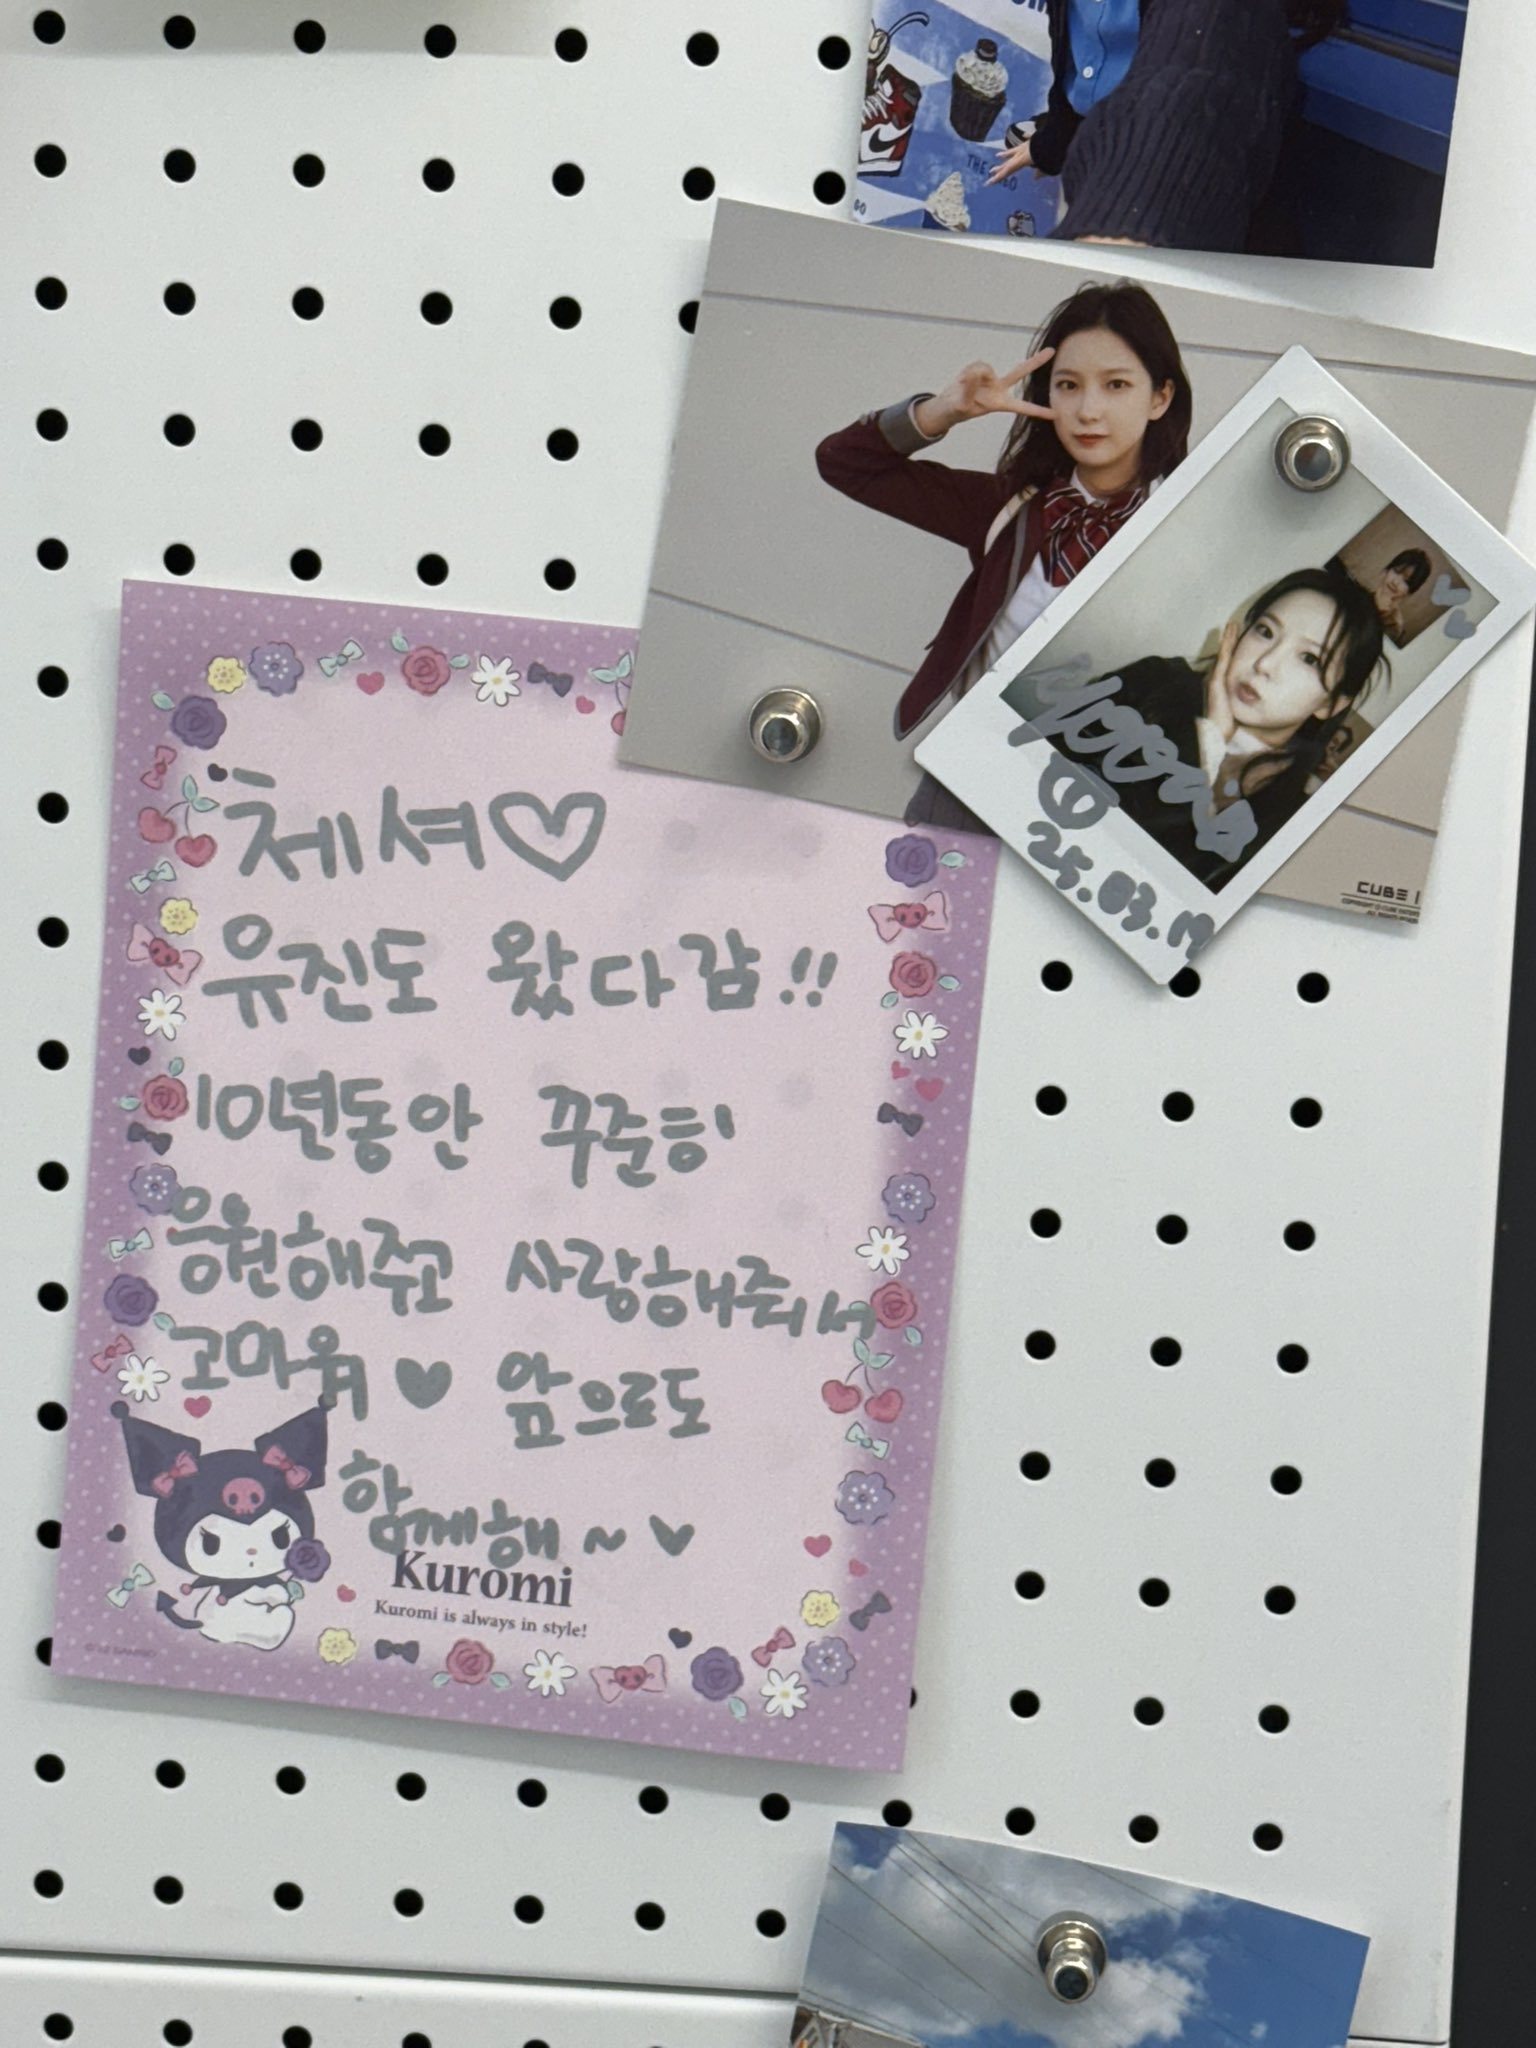 THE
GO
체셔♡
유진도 왔다감!!
10년동안 꾸준히
응원해주고 사랑해줘서
고마워 ♥ 앞으로도
함께해 ~ ♥
Kuromi
Kuromi is always in style!
25.03.19
CUBE